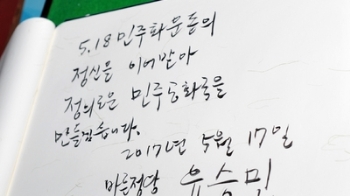 5.18민주화운동의
정신을 이어받아
정의로운 민주공화국을
만들겠습니다.
2017년 5월 17일
바른정당 유승민